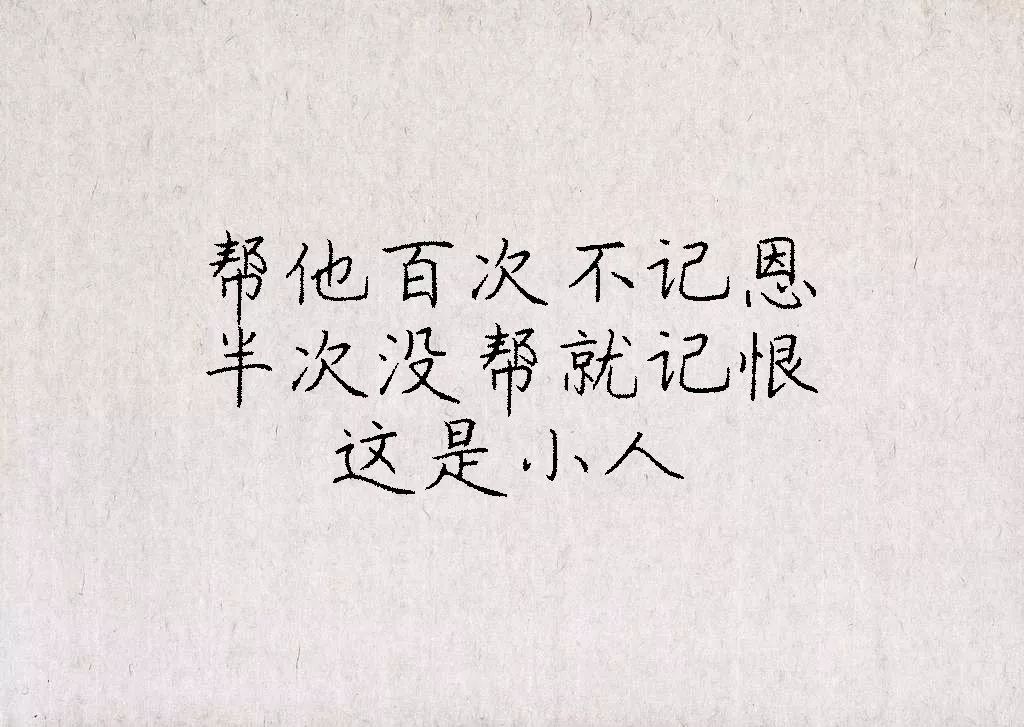 帮他百次不记恩
半次没帮就记恨
这是小人